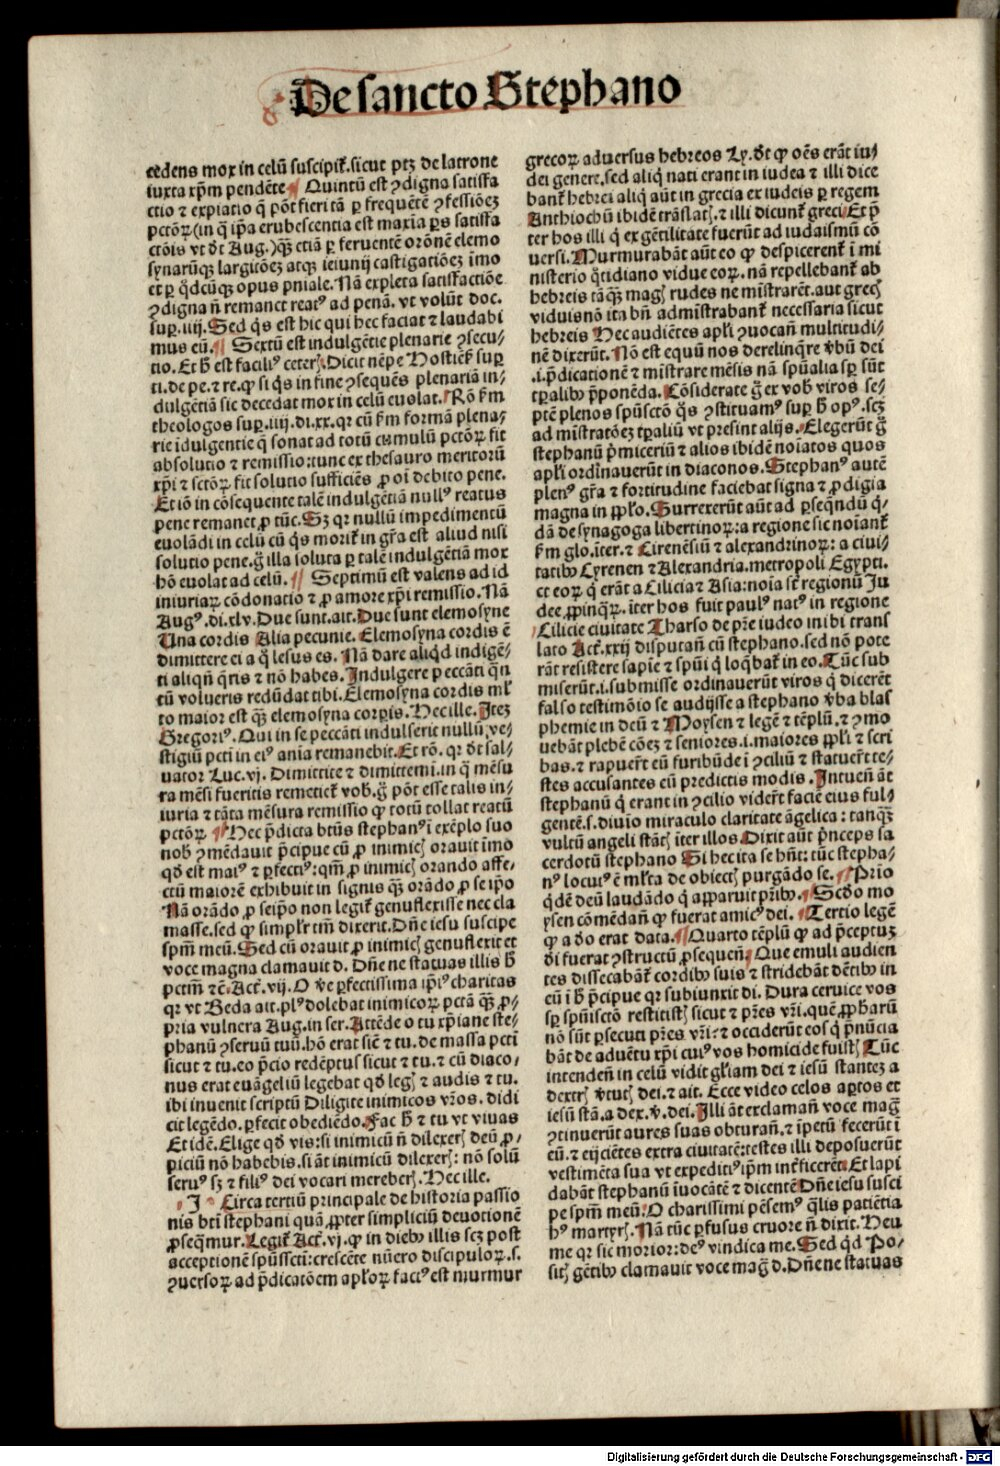 De sancto Stephano
cedens mox in celū suscipit̄. sicut ptꝫ de latrone
iuxta xp̄m pendēte ¶ Quintū est ꝯdigna satiffa
ctio ⁊ expiatio q̄ pōt fieri tā ꝑ frequētē ꝯfessiōeꝫ
pctōꝝ (in q̄ ip̄a erubescentia est maxīa ꝑs satiffa
ctōis vt dt̄ Aug.) qꝫ̄ etiā ꝑ feruentē orōnē elemo
synarūqꝫ largitōeꝫ atqꝫ ieiunij castigatiōeꝫ īmo
et ꝑ qd̄cūqꝫ opus pniale. Nā expleta satisfactiōe
ꝯdigna n̄ remanet reatꝰ ad penā. vt volūt doc.
suꝑ .iiij. Sed q̄s est hic qui hec faciat ⁊ laudabi
mus eū. ¶ Sextū est indulgētie plenarie ꝯsecu⸗
tio. Et h̄ est faciliꝰ ceterꝭ. Dicit nēpe Hostien̄ suꝑ
ti. de pe. ⁊ re. ꝙ si q̄s in fine ꝯsequēs plenariā in⸗
dulgētiā sic decedat mox in celū euolat. Rō ẜm
theologos suꝑ. iiij. di. xx. qꝛ cū ẜm formā plena⸗
rie īdulgentie q̄ sonat ad totū cumulū pctōꝝ fit
absolutio ⁊ remissio: tunc ex thesauro meritorū
xp̄i ⁊ sctōꝝ fit solutio sufficiēs ꝓ oī debito pene.
Et iō in cōsequente talē indulgētiā nullꝰ reatus
pene remanet ꝓ tūc. Sꝫ qꝛ nullū impedimentū
euolādi in celū cū q̄s morit̄ in gr̄a est aliud nisi
solutio pene. g̊ illa soluta ꝑ talē indulgētiā mox
hō euolat ad celū. ¶ Septimū est valens ad id
iniuriaꝝ cōdonatio ⁊ ꝓ amore xp̄i remissio. Nā
Augꝰ. di. xlv. Due sunt. ait. Due sunt elemosyne
Una cordis Alia pecunie. Elemosyna cordis ē
dimittere ei a q̊ lesus es. Nā dare aliqd̄ indigē⸗
ti aliqn̄ q̄ris ⁊ nō habes. Indulgere peccāti q̄n
tū volueris redūdat tibi. Elemosyna cordis ml̄
to maior est qꝫ̄ elemosyna corꝑis. Hec ille. Iteꝫ
Gregoriꝰ. Qui in se peccāti indulserit nullū ve⸗
stigiū pcti in eiꝰ aīa remanebit. Et rō. qꝛ dt̄ sal⸗
uator Luc. vj. Dimittite ⁊ dimittemi. in q̄ mēsu
ra mēsi fueritis remetiet̄ vob̄. g̊ pōt esse talis in⸗
iuria ⁊ tāta mēsura remissio ꝙ totū tollat reatū
pctōꝝ ¶ Hec p̄dicta btūs stephanꝰ ī exēplo suo
nob̄ ꝯmēdauit p̄cipue cū ꝓ inimicꝭ orauit īmo
qd̄ est maiꝰ ⁊ ꝑfectiꝰ: qm̄ ꝓ inimicꝭ orando affe⸗
ctū maiorē exhibuit in signis qꝫ̄ orādo ꝓ se ip̄o
Nā orādo ꝓ seip̄o non legit̄ genuflexisse nec cla
masse. sed ꝙ simpl̄r tm̄ dixerit. Dn̄e iesu suscipe
spm̄ meū. Sed cū orauit ꝓ inimicꝭ genuflexit et
voce magna clamauit d. Dn̄e ne statuas illis h̄
pctm̄ ⁊c̄. Act̄. vij. O ve ꝑfectissima ip̄iꝰ charitas
qꝛ vt Beda ait. plꝰ dolebat inimicoꝝ pctā qꝫ̄ ꝓ⸗
pria vulnera Aug. in ser. Attēde o tu xp̄iane ste⸗
phanū ꝯseruū tuū. hō erat sic̄ ⁊ tu. de massa pcti
sicut ⁊ tu. eo p̄cio redēptus sicut ⁊ tu. ⁊ cū diaco⸗
nus erat euāgeliū legebat qd̄ legꝭ ⁊ audis ⁊ tu.
ibi inuenit scriptū Diligite inimicos vr̄os. didi
cit legēdo. ꝑfecit obediēdo. Fac h̄ ⁊ tu vt viuas
Et idē. Elige qd̄ vis: si inimicū n̄ dilexerꝭ deū ꝓ⸗
piciū nō habebis. si āt inimicū dilexerꝭ: nō solū
seruꝰ sꝫ ⁊ filiꝰ dei vocari mereberꝭ. Hec ille.
¶ Circa tertiū principale de historia passio
nis bt̄i stephani quā ꝓpter simpliciū deuotionē
ꝓseq̄mur. Legit̄ Act̄. vj. ꝙ in dieb⁹ illis scꝫ post
acceptionē sp̄ussctī: crescēte nūero discipuloꝝ. s.
ꝯuersoꝝ ad p̄dicatōem apl̄oꝝ factꝰ est murmur
grecoꝝ aduersus hebreos Ly. dt̄ ꝙ oēs erāt iu⸗
dei genere. sed aliq̄ nati erant in iudea ⁊ illi dice
bant̄ hebrei aliq̄ aūt in grecia ex iudeis ꝑ regem
Anthiochū ibidē trāslatꝭ. ⁊ illi dicunt̄ greci. Et p̄
ter hos illi q̄ ex gētilitate fuerūt ad iudaismū cō
uersi. Murmurabāt aūt eo ꝙ despicerent̄ ī mi
nisterio q̄tidiano vidue eoꝝ. nā repellebant̄ ab
hebreis tāqꝫ̄ magꝭ rudes ne mīstrarēt. aut grecꝭ
viduis nō ita bn̄ admīstrabant̄ necessaria sicut
hebreis Hec audiētes apl̄i ꝯuocan̄ multitudi⸗
nē dixerūt. Nō est equū nos derelinq̄re v̄bū dei
.i. p̄dicationē ⁊ mīstrare mēsis nā spūalia sꝑ sūt
tꝑalib⁹ p̄ponēda. Cōsiderate g̊ ex vob̄ viros se⸗
ptē plenos spūsctō q̄s ꝯstituamꝰ suꝑ h̄ opꝰ. scꝫ
ad mīstratōeꝫ tꝑaliū vt presint alijs. Elegerūt g̊
stephanū p̄miceriū ⁊ alios ibidē noīatos quos
apl̄i ordīnauerūt in diaconos. Stephanꝰ autē
plenꝰ gr̄a ⁊ fortitudine faciebat signa ⁊ ꝓdigia
magna in pp̄lo. Surrexerūt aūt ad ꝑseq̄ndū q̄⸗
dā de synagoga libertinoꝝ: a regione sic noīant̄
ẜm glo. īter. ⁊ Cirenēsiū ⁊ alexandrinoꝝ: a ciui⸗
tatib⁹ Cyrenen ⁊ Alexandria. metropoli Egypti.
et eoꝝ q̄ erāt a Cilicia ⁊ Asia: noīa st̄ regionū Iu
dee ꝓpinq̄ꝝ. īter hos fuit paulꝰ natꝰ in regione
Cilicie ciuitate Tharso de pr̄e iudeo inibi trans
lato Act̄. xxij disputan̄ cū stephano. sed nō pote
rāt resistere sapīe ⁊ spūi q̄ loq̄bat̄ in eo. Tūc sub
miserūt .i. submisse ordinauerūt viros q̄ dicerēt
falso testimōio se audijsse a stephano v̄ba blas
phemie in deū ⁊ Moysen ⁊ legē ⁊ tēplū. ⁊ ꝯmo
uebāt plebē cōeꝫ ⁊ seniores .i. maiores pp̄li ⁊ scri
bas. ⁊ rapuer̄t eū furibūde ī ꝯciliū ⁊ statuer̄t te⸗
stes accusantes eū predictis modis. Intuen̄ āt
stephanū q̄ erant in ꝯcilio vider̄t faciē eius ful⸗
gentē. s. diuīo miraculo claritate āgelica: tanqꝫ̄
vultū angeli stātꝭ īter illos Dixit aūt p̄nceps sa
cerdotū stephano Si hec ita se hn̄t: tūc stepha⸗
nꝰ locutꝰ ē ml̄ta de obiectꝭ purgādo se. ¶ Prīo
q̄dē deū laudādo q̄ apparuit pr̄ib⁹. ¶ Scd̄o mo
ysen cōmēdan̄ ꝙ fuerat amicꝰ dei. ¶ Tertio legē
ꝙ a do erat data. ¶ Quarto tēplū ꝙ ad p̄ceptuꝫ
di fuerat ꝯstructū ꝓsequen̄. Que emuli audien
tes dissecabāt̄ cordib⁹ suis ⁊ stridebāt dētib⁹ in
eū ī h̄ p̄cipue qꝛ subiunxit di. Dura ceruice vos
sꝑ spūisctō restitistꝭ sicut ⁊ pr̄es vr̄i. quē ꝓph̄arū
nō sūt ꝑsecuti pr̄es vr̄i: ⁊ occiderūt eos q̄ p̄nūcia
bāt de aduētu xp̄i cuiꝰ vos homicide fuistꝭ Tūc
intenden̄ in celū vidit gl̄iam dei ⁊ iesū stanteꝫ a
dextrꝭ v̄tutꝭ dei. ⁊ ait. Ecce video celos aꝑtos et
iesū stā. a dex. v̄. dei. Illi āt exclaman̄ voce mag̊
ꝯtinuerūt aures suas obturan̄. ⁊ īpetū fecerūt ī
eū. ⁊ eijciētes extra ciuitatē: testes illi deposuerūt
vestimēta sua vt expeditiꝰ ip̄m int̄ficerēt. Et lapi
dabāt stephanū īuocātē ⁊ dicentē Dn̄e iesu susci
pe spm̄ meū. O charissimi pēsemꝰ q̄lis patiētia
hꝰ martyrꝭ. Nā tūc ꝑfusus cruore n̄ dixit. Heu
me qꝛ sic morior: deꝰ vindica me. Sed qd̄ Po⸗
sitꝭ gētib⁹ clamauit voce mag̊ d. Dn̄e ne statuas
Digitalisierung gefördert durch die Deutsche Forschungsgemeinschaft - DFG